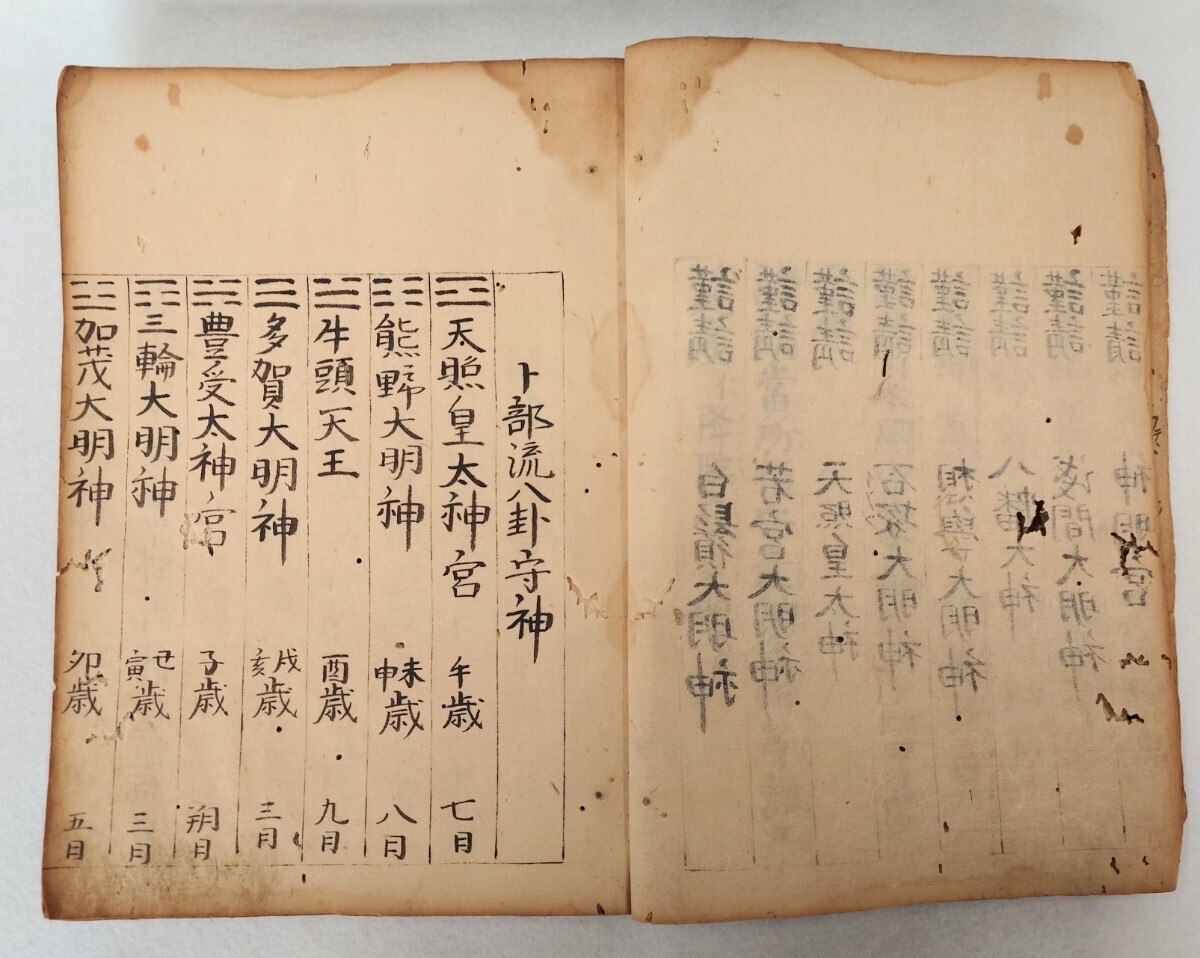 謹請 神明宮
謹請 浅間大明神
謹請 八幡大神
謹請 相與大明神
謹請 大明神
謹請 天照皇太神
謹請 若宮大明神
謹請 白髭須大明神
卜部流八卦守神
☲ 天照皇太神宮 午歳 七日
☷ 熊野大明神 未申歳 八日
☱ 牛頭天王 酉歳 九日
☰ 多賀大明神 戌亥歳 三日
☵ 豊受太神宮 子歳 朔日
☶ 三輪大明神 丑寅歳 三日
☳ 加茂大明神 卯歳 五日